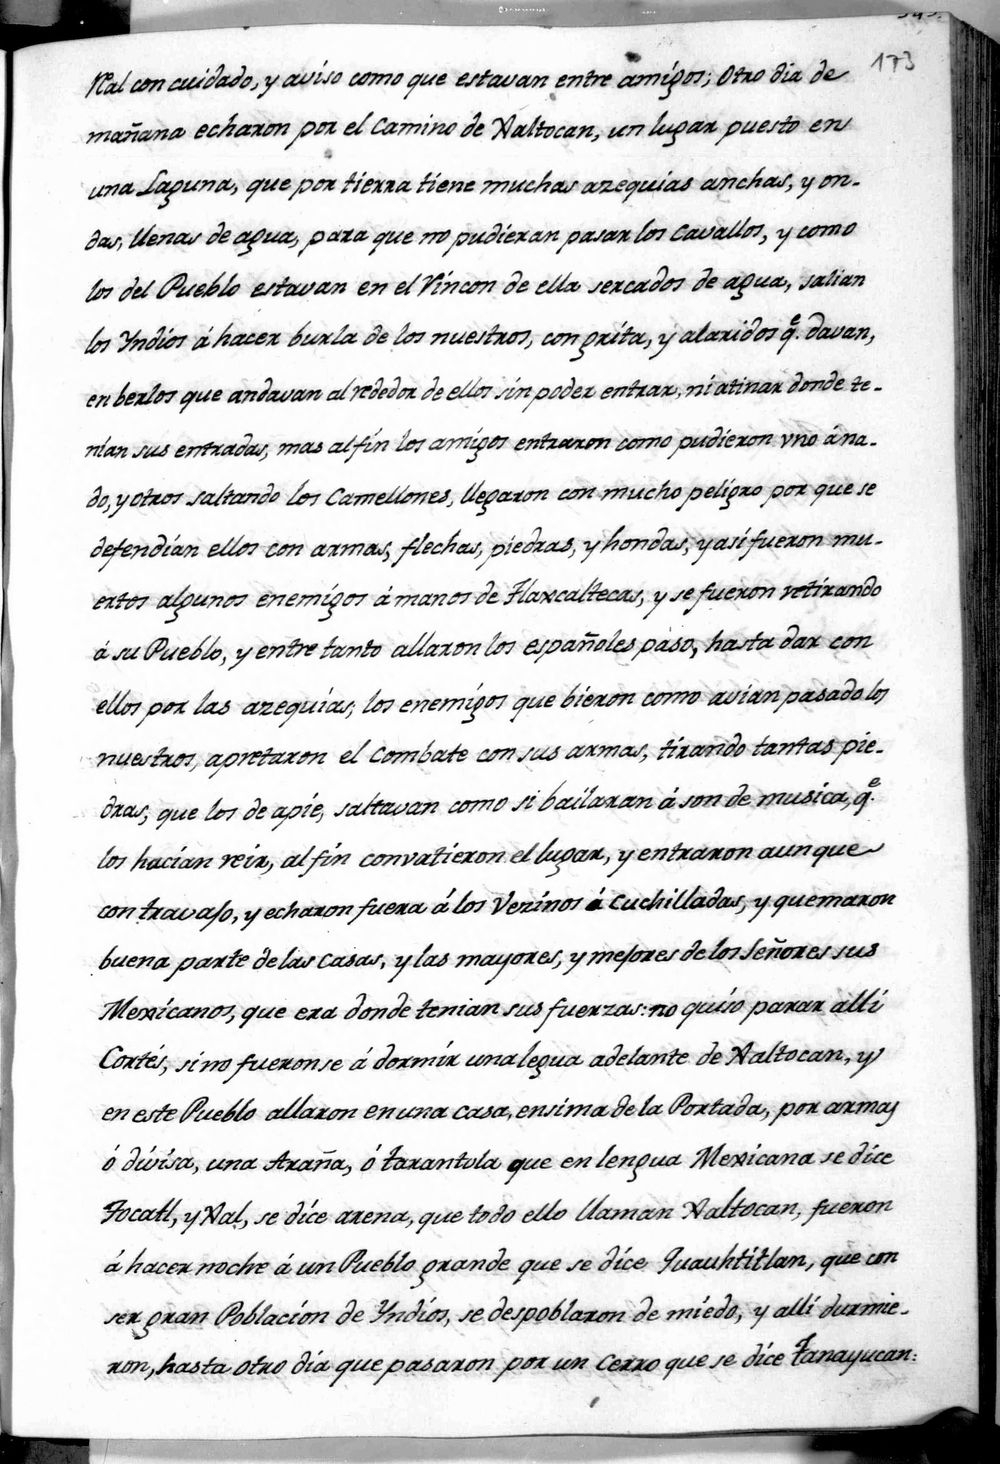 173
Real con cuidado, y aviso como que estavan entre amigos; Otro dia de
mañana echaron por el Camino de Xaltocan, un lugar puesto en
una Laguna, que por tierra tiene muchas azequias anchas, y on-
das, llenas de agua, para que no pudieran pasar los Cavallos, y como
los del Pueblo estavan en el Rincon de ella sercados de agua, salian
los Yndios á hacer burla de los nuestros, con grita, y alaridos q.e davan,
en berlos que andavan al rededor de ellos sin poder entrar, ni atinar donde te-
nian sus entradas, mas al fin los amigos entraron como pudieron vno á na-
do, y otros saltando los Camellones, llegaron con mucho peligro por que se
defendian ellos con armas, flechas, piedras, y hondas, y asi fueron mu-
ertos algunos enemigos á manos de Tlaxcaltecas, y se fueron retirando
á su Pueblo, y entre tanto allaron los españoles paso, hasta dar con
ellos por las azequias; los enemigos que bieron como avian pasado los
nuestros, apretaron el Combate con sus armas, tirando tantas pie-
dras, que los de apie, saltavan como si bailaran á son de musica, q.e
los hacian reir, al fin convatieron el lugar, y entraron aunque
con travajo, y echaron fuera á los Vezinos á Cuchilladas, y quemaron
buena parte de las Casas, y las mayores, y mejores de los Señores sus
Mexicanos, que era donde tenian sus fuerzas: no quiso parar allí
Cortés, sino fueronse á dormir una legua adelante de Xaltocan, y
en este Pueblo allaron en una casa, ensima de la Portada, por armas
ó divisa, una Araña, ó tarantula que en lengua Mexicana se dice
Tocatl, y Xal, se dice arena, que todo ello llaman Xaltocan, fueron
á hacer noche á un Pueblo grande que se dice Quauhtitlan, que con
ser gran Poblacion de Yndios, se despoblaron de miedo, y alli durmie-
ron, hasta otro dia que pasaron por un Cerro que se dice Tanayucan: